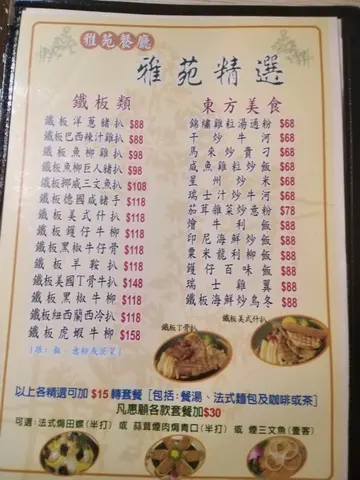 雅苑餐廳
雅苑精選
鐵板類
鐵板洋蔥豬扒 $88
鐵板巴西辣汁雞扒 $88
鐵板魚柳雞扒 $98
鐵板魚柳巨人豬扒 $98
鐵板挪威三文魚扒 $108
鐵板德國咸豬手 $118
鐵板美式什扒 $118
鐵板鑊仔牛柳 $118
鐵板黑椒牛仔骨 $118
鐵板羊鞍扒 $118
鐵板美國丁骨牛扒 $148
鐵板黑椒牛柳 $118
鐵板紐西蘭西冷扒 $118
鐵板虎蝦牛柳 $158
東方美食
錦繡雞粒湯通粉 $68
干炒牛河 $68
馬來炒貴刁 $68
咸魚雞粒炒飯 $68
星州炒米 $68
瑞士汁炒牛河 $68
茄茸雜菜炒意粉 $78
燴牛利飯 $88
印尼海鮮炒飯 $88
粟米龍利柳飯 $88
鑊仔百味飯 $88
瑞士雞翼 $88
鐵板海鮮炒烏冬 $88
鐵板丁骨扒
鐵板美式什扒
以上各精選可加 $15 轉套餐 [包括:餐湯、法式麵包及咖啡或茶]
凡惠顧各款套餐加$30
可選:法式焗田螺(半打) 或 蒜茸煙肉焗青口(半打) 或 煙三文魚(壹客)